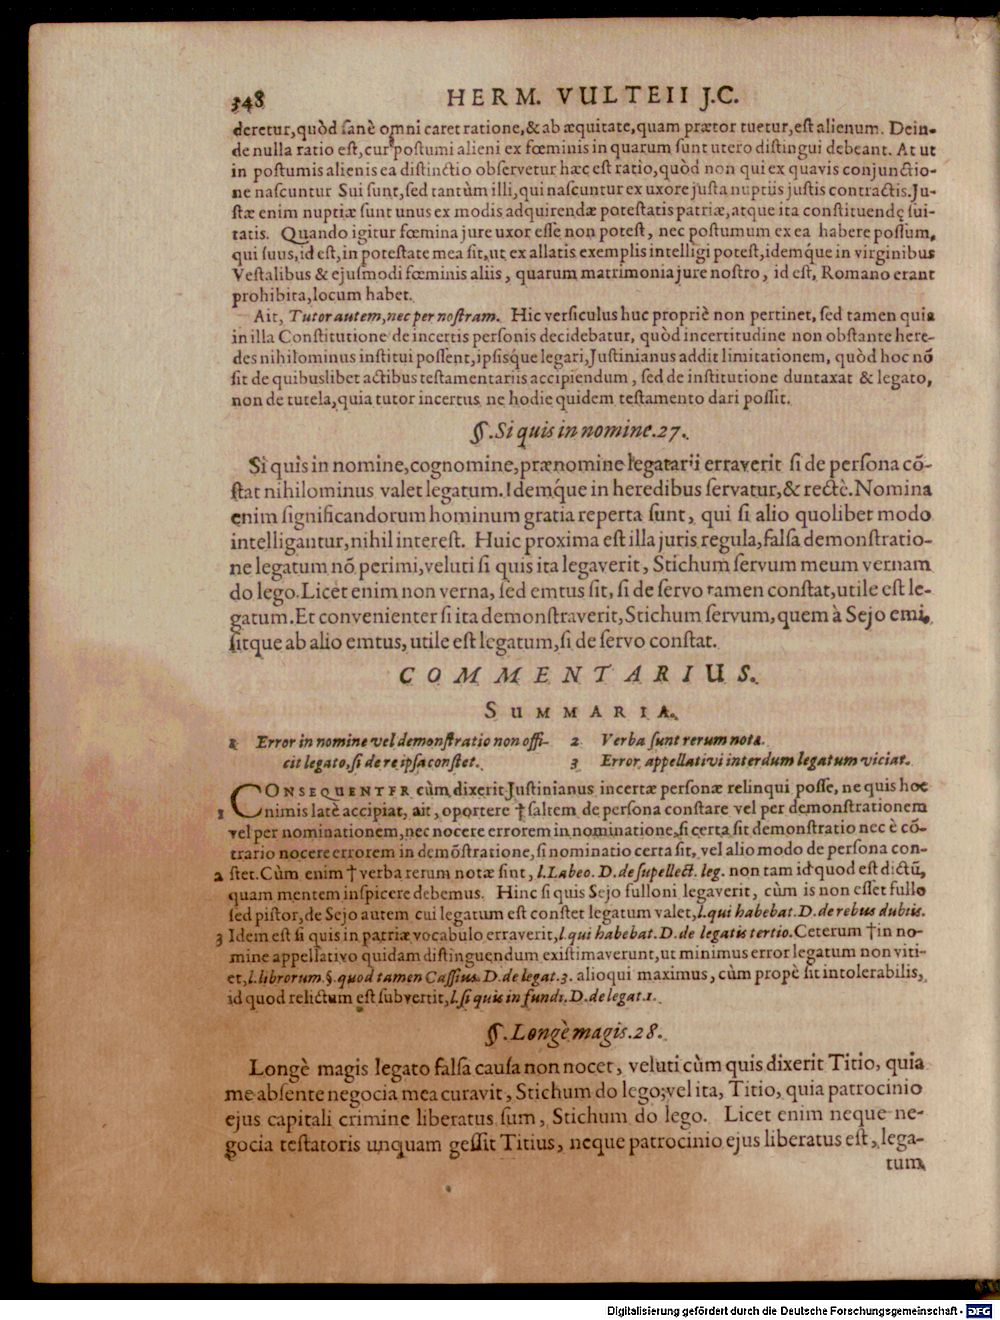 348
HERM. VULTEII J.C.
deretur, quòd sanè omni caret ratione, & ab æquitate, quam prætor tuetur, est alienum. Dein-
de nulla ratio est, cur postumi alieni ex fœminis in quarum sunt utero distingui debeant. At ut
in postumis alienis ea distinctio observetur hæc est ratio, quòd non qui ex quavis conjunctio-
ne nascuntur Sui sunt, sed tantùm illi, qui nascuntur ex uxore justa nuptiis justis contractis. Ju-
stæ enim nuptiæ sunt unus ex modis adquirendæ potestatis patriæ, atque ita constituendę sui-
tatis. Quando igitur fœmina jure uxor esse non potest, nec postumum ex ea habere possum,
qui suus, id est, in potestate mea sit, ut ex allatis exemplis intelligi potest, idemque in virginibus
Vestalibus & ejusmodi fœminis aliis, quarum matrimonia jure nostro, id est, Romano erant
prohibita, locum habet.
Ait, Tutor autem, nec per nostram. Hic versiculus huc propriè non pertinet, sed tamen quia
in illa Constitutione de incertis personis decidebatur, quòd incertitudine non obstante here-
des nihilominus institui possent, ipsisque legari, Justinianus addit limitationem, quòd hoc nō
sit de quibuslibet actibus testamentariis accipiendum, sed de institutione duntaxat & legato,
non de tutela, quia tutor incertus ne hodie quidem testamento dari possit.
§. Si quis in nomine. 27.
Si quis in nomine, cognomine, prænomine legatarii erraverit si de persona cō-
stat nihilominus valet legatum. Idemque in heredibus servatur, & rectè. Nomina
enim significandorum hominum gratia reperta sunt, qui si alio quolibet modo
intelligantur, nihil interest. Huic proxima est illa juris regula, falsa demonstratio-
ne legatum nō perimi, veluti si quis ita legaverit, Stichum servum meum vernam
do lego. Licet enim non verna, sed emtus sit, si de servo tamen constat, utile est le-
gatum. Et convenienter si ita demonstraverit, Stichum servum, quem à Sejo emi,
sitque ab alio emtus, utile est legatum, si de servo constat.
COMMENTARIUS.
SUMMARIA.
1 Error in nomine vel demonstratio non offi-
cit legato, si de re ipsa constet.
2 Verba sunt rerum nota.
3 Error appellativi interdum legatum viciat.
CONSEQUENTER cùm dixerit Justinianus incertæ personæ relinqui posse, ne quis hoc
1 nimis latè accipiat, ait, oportere † saltem de persona constare vel per demonstrationem
vel per nominationem, nec nocere errorem in nominatione, si certa sit demonstratio nec è cō-
trario nocere errorem in demōstratione, si nominatio certa sit, vel alio modo de persona con-
2 stet. Cùm enim † verba rerum notæ sint, l. Labeo. D. de supellect. leg. non tam id quod est dictū,
quam mentem inspicere debemus. Hinc si quis Sejo fulloni legaverit, cùm is non esset fullo
sed pistor, de Sejo autem cui legatum est constet legatum valet, l. qui habebat. D. de rebus dubiis.
3 Idem est si quis in patriæ vocabulo erraverit, l. qui habebat. D. de legatis tertio. Ceterum † in no-
mine appellativo quidam distinguendum existimaverunt, ut minimus error legatum non viti-
et, l. librorum. §. quod tamen Cassius. D. de legat. 3. alioqui maximus, cùm propè sit intolerabilis,
id quod relictum est subvertit, l. si quis in fundi. D. de legat. 1.
§. Longè magis. 28.
Longè magis legato falsa causa non nocet, veluti cùm quis dixerit Titio, quia
me absente negocia mea curavit, Stichum do lego; vel ita, Titio, quia patrocinio
ejus capitali crimine liberatus sum, Stichum do lego. Licet enim neque ne-
gocia testatoris unquam gessit Titius, neque patrocinio ejus liberatus est, lega-
tum
Digitalisierung gefördert durch die Deutsche Forschungsgemeinschaft - DFG